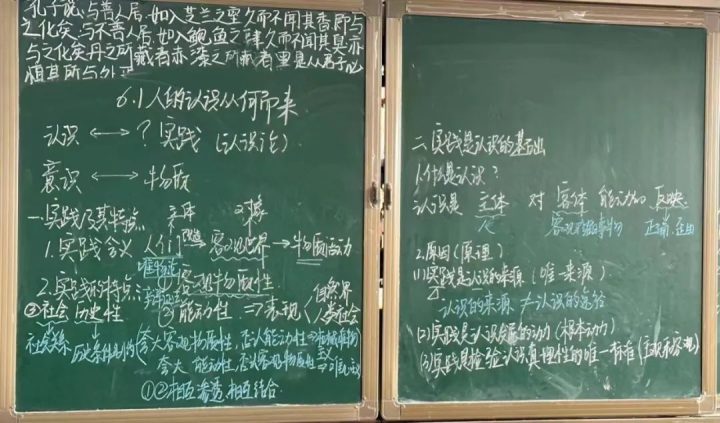 孔子说:与善人居,如入芝兰之室,久而不闻其香,即与
之化矣.与不善人居,如入鲍鱼之肆,久而不闻其臭,亦
与之化矣.丹之所藏者赤,漆之所藏者黑,是以君子必
慎其所与处
6.1 人的认识从何而来
认识 ←→ ? 实践 (认识论)
意识 ←→ 物质
一.实践及其特点
主体 对象
1.实践含义 人们 改造 客观世界 → 物质活动
唯物论
2.实践的特点 ① 客观物质性
辩证法 ② 能动性 ⇒ 表现 自然界
人类社会
③社会历史性
社会关系 历史条件 夸大客观物质性 否认能动性
夸大 能动性 否认客观物质性
①②相互渗透,相互结合
二.实践是认识的基础
1.什么是认识?
认识是 主体 对 客体 能动的 反映
人 正确、歪曲
2.原因(原理)
(1)实践是认识的来源 (唯一来源)
认识的来源 ≠ 认识的途径
(2)实践是认识发展的动力 (根本动力)
(3)实践是检验认识真理性的唯一标准